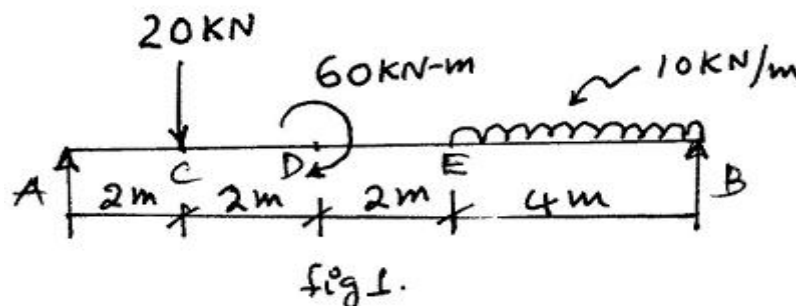 20KN
60KN-m
10KN/m
A C D E B
2m 2m 2m 4m
fig 1.